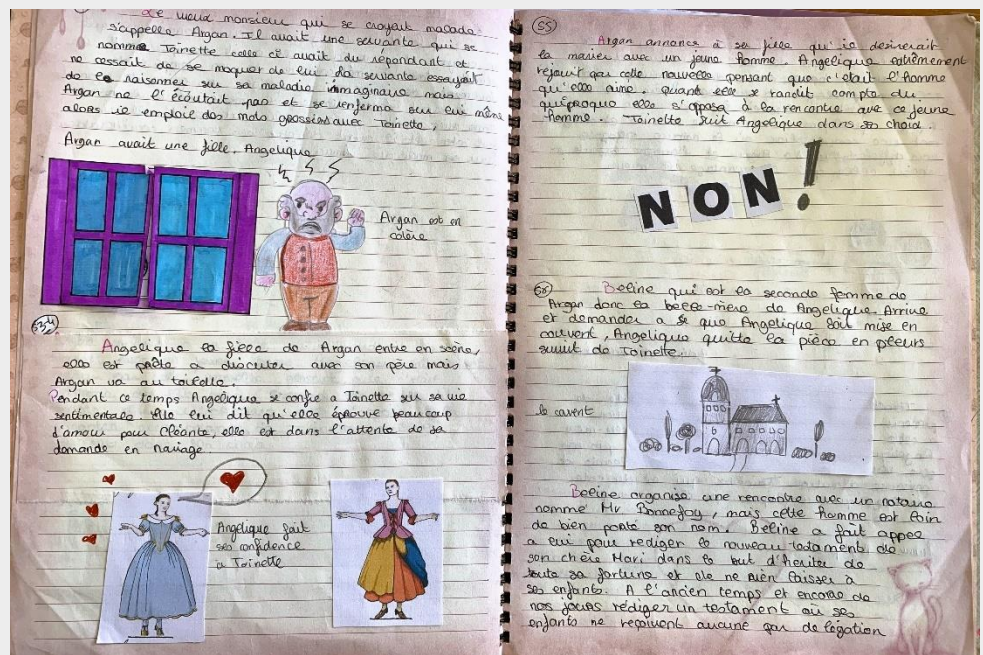 Le vieux monsieur qui se croyait malade
s'appelle Argan. Il avait une servante qui se
nomme Toinette celle ci avait du répondant et
ne cessait de se moquer de lui. La servante essayait
de le raisonner sur sa maladie immaginaire mais
Argan ne l'écoutait pas et se renferma sur lui même
alors il emploie des mots grossiers avec Toinette,
Argan avait une fille, Angelique
Argan est en
colère
Angelique la fille de Argan entre en scène,
elle est prête a discuter avec son père mais
Argan va au toilette.
Pendant ce temps Angelique se confie a Toinette sur sa vie
sentimentale. Elle lui dit qu'elle éprouve beaucoup
d'amour pour Cléante, elle est dans l'attente de sa
demande en mariage.
Angélique fait
ses confidence
a Toinette
S5
Argan annonce à sa fille qu'il desirerait
la marier avec un jeune homme. Angelique extrêmement
rejouit par cette nouvelle pensant que c'était l'homme
qu'elle aime. Quand elle se randit compte du
quiproquo elle s'oposa à la rencontre avec ce jeune
homme. Toinette suit Angelique dans son choix.
NON!
Beline qui est la seconde femme de
Argan donc la belle-mère de Angelique. Arrive
et demander a se que Angelique soit mise en
couvent, Angelique quitte la pièce en pleurs
suivit de Toinette.
le couvent
Beline organise une rencontre avec un notaire
nommé Mr Bonnefoy, mais cette homme est loin
de bien porté son nom. Beline a fait appel
a lui pour rediger le nouveau testament de
son chère Mari dans le but d'heriter de
toute sa fortune et de ne rien laisser à
ses enfants. A l'ancien temps et encore de
nos jours rédiger un testament où ses
enfants ne reçoivent aucune par de légation